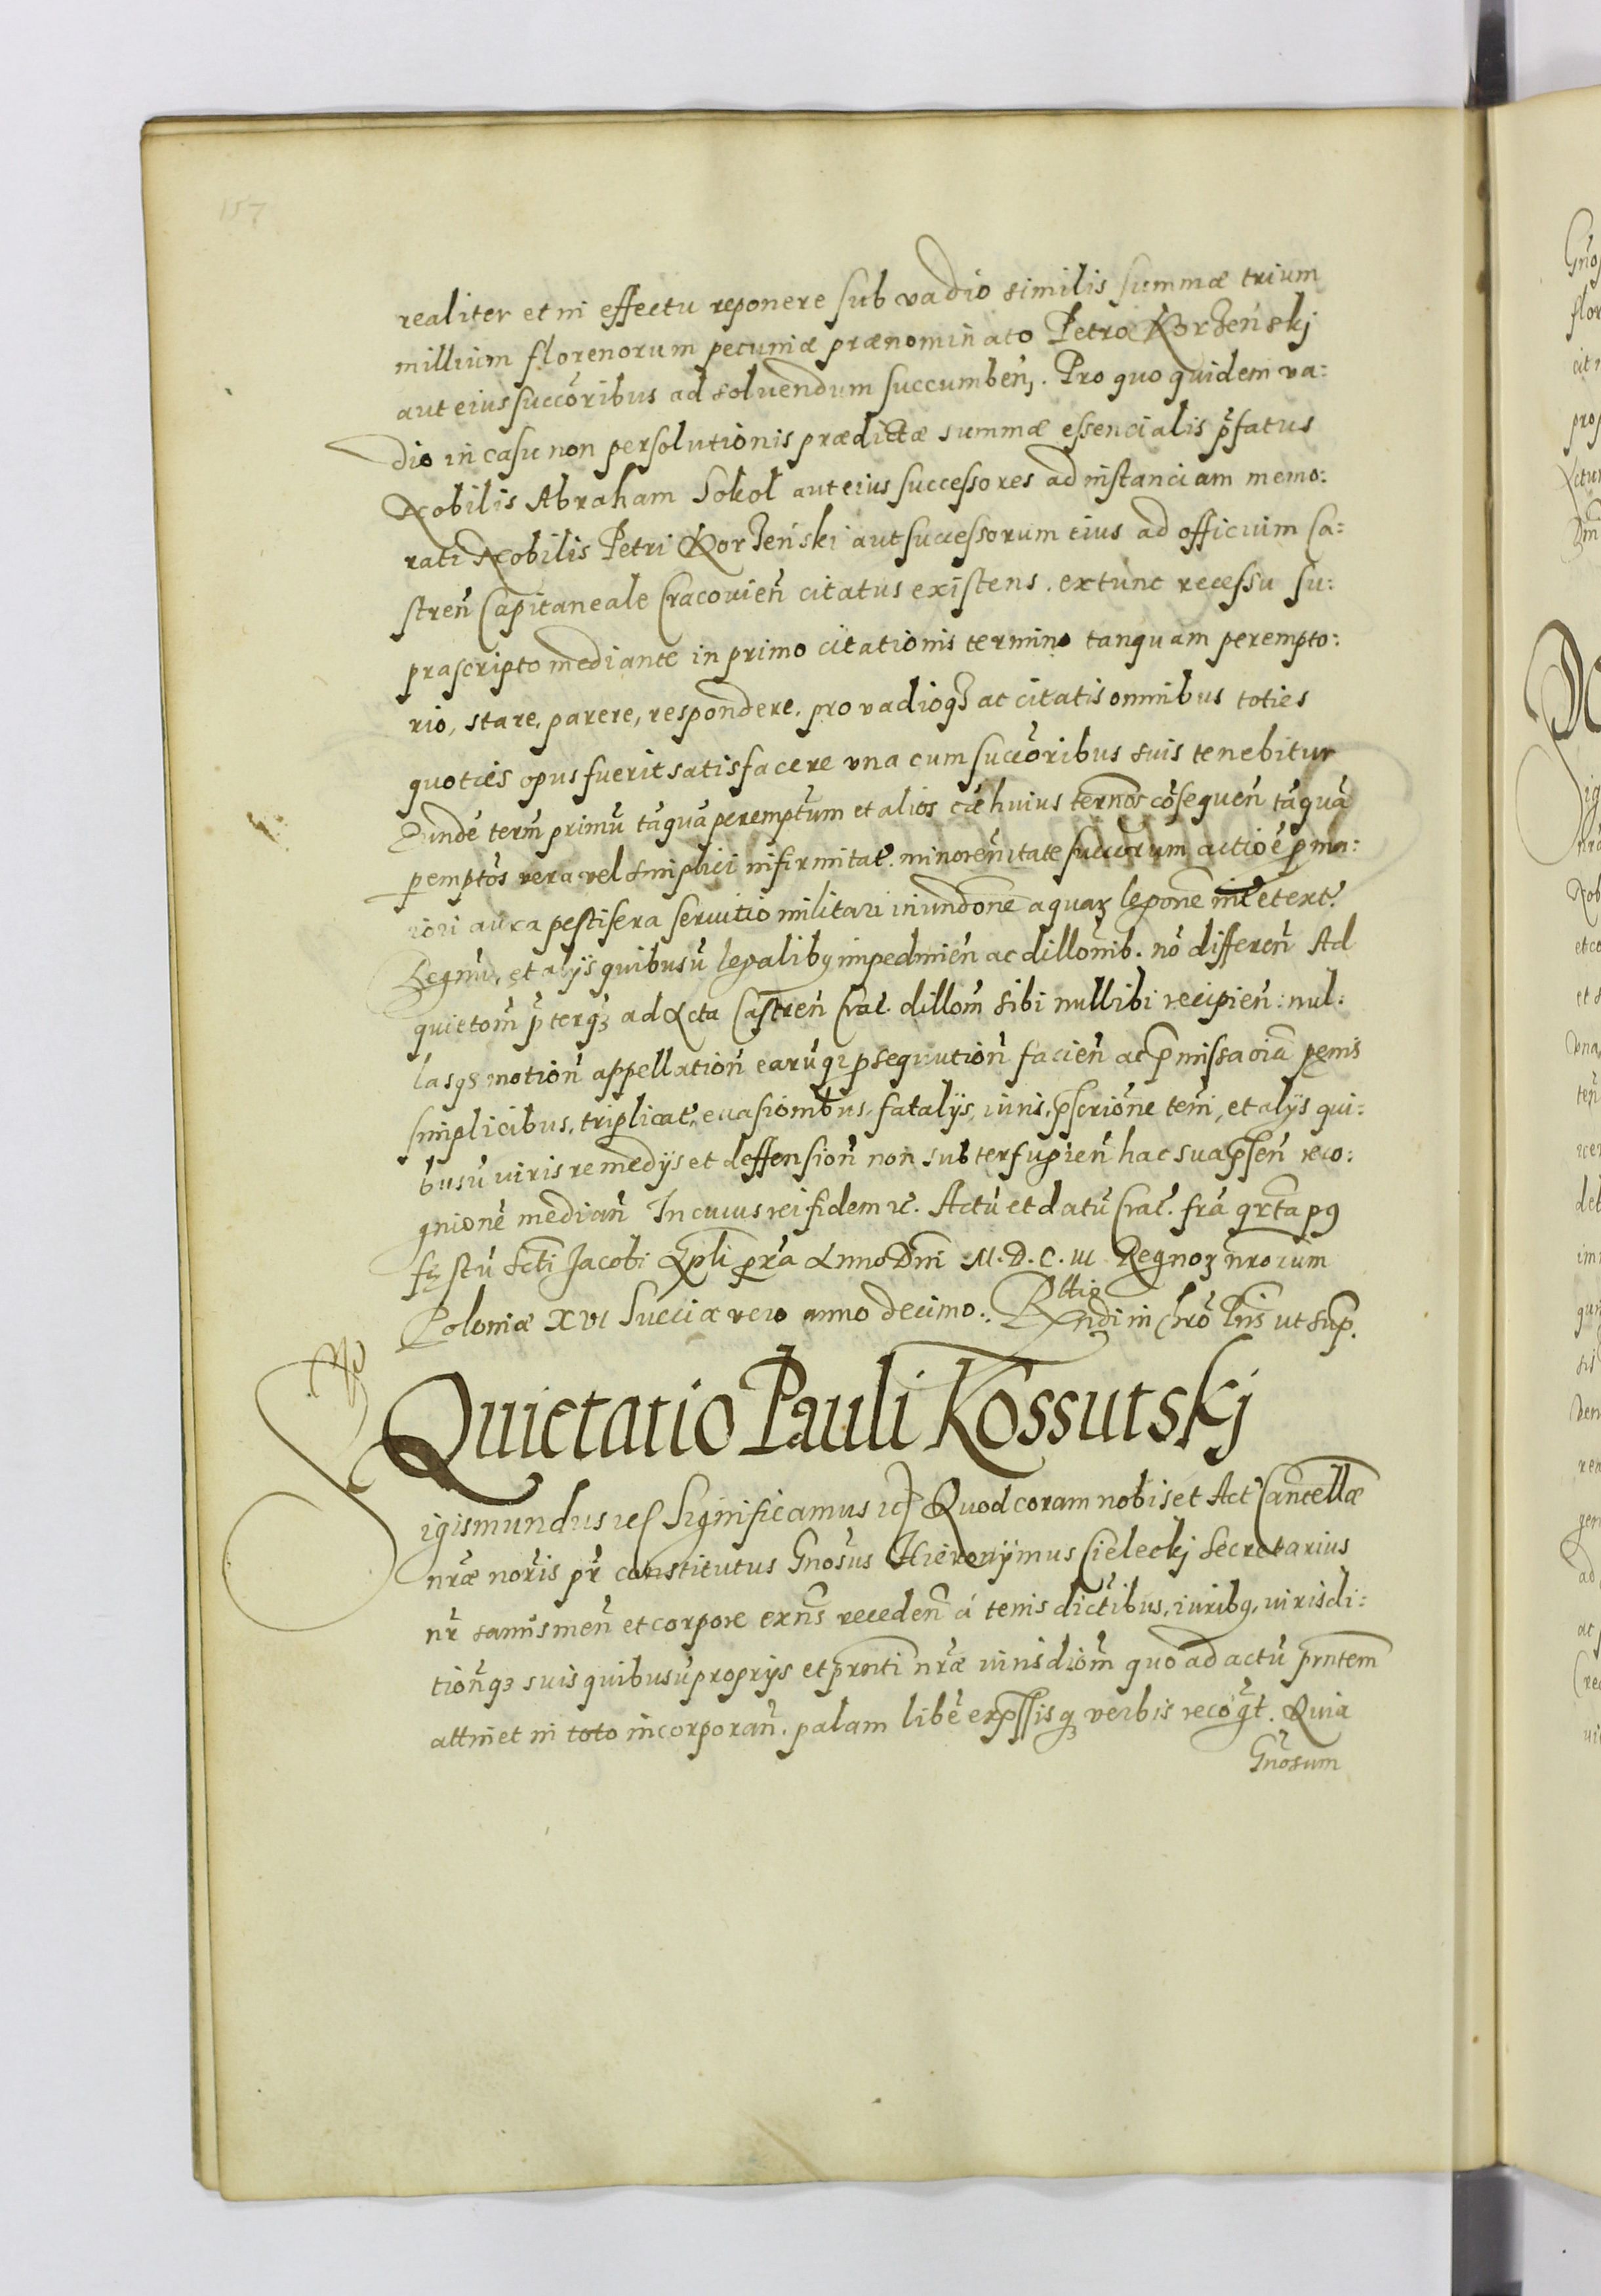 157
realiter et in effectu reponere sub vadio similis summæ trium
millium florenorum pecuniæ prænominato Petro Korzeńskj
aut eius succõribus ad soluendum succumben̄. Pro quo quidem va:
dio in casu non persolutionis prædictæ summæ essencialis p̄fatus
Nobilis Abraham Sokol aut eius successores ad instanciam memo:
rati Nobilis Petri Korzeński aut successorum eius ad officium Ca:
stren̄ Capitaneale Cracouien̄ citatus existens. extunc recessu su:
prascripto mediante in primo citationis termino tanquam perempto:
rio, stare, parere, respondere. pro vadioq₃ ac citatis omnibus toties
quoties opus fuerit satisfacere vna cum succõribus suis tenebitur
Eundē term̄ primū tāquā peremptum et alios cīe huius termõs cōsequen̄ tāquā
pemptõs vera vel simplici infirmitat̄. minoren̄itate succõrum actiōe p min:
iori aura pestifera seruitio militari inundõne aquaꝝ lepõne
Regnū, et alijs quibusū legalibꝫ impedimen̄ ac dillom̄ib. nō differen̄ Ad
quietom̄ p̄terq₃ ad Acta Castren̄ Crac̄. dillom̄ sibi nullibi recipien̄: nul:
lasq₃ motion̄ appellation̄ earūq₃ psequution̄ facien̄ ac p̄missa oīa penis
simplicibus, triplicat̄, euasionibus, fatalijs, iuris, pscriõne teri, et alijs qui:
busū viris remedijs et deffension̄ non subterfugien̄ hac sua p̄sen̄ reco:
gnionē median̄ In cuius rei fidem ꝛc. Actū et datū Crac̄. fr̄a qr̄ta pꝯ
fęstū Scti Jacobi Apl̄i pr̄a Anno Dn̄i M.D.C.III Regnoꝝ nr̄orum
Poloniæ XVI Sueciæ vero anno decimo. Rltio Rndi in Chr̄o Pr̄is ut sup̄.
Quietatio Pauli Kossutskj
Sigismundus ꝛc Significamus ꝛc Quod coram nobis et Act̄ Cancellæ
nr̄æ nor̄is pr̄ constitutus Gnōsus Hieronÿmus Cieleckj Secretarius
nr̄ sanus men̄ et corpore exn̄s receden̄ á teris dictībus, iuribꝫ, iurisdi:
tion̄q₃ suis quibusū proprijs et prn̄ti nr̄æ iurisdiom̄ quo ad actū prn̄tem
attinet in toto incorporan̄. palam libē exp̄ssisq₃ verbis recog̅t. Quia
Gnōsum